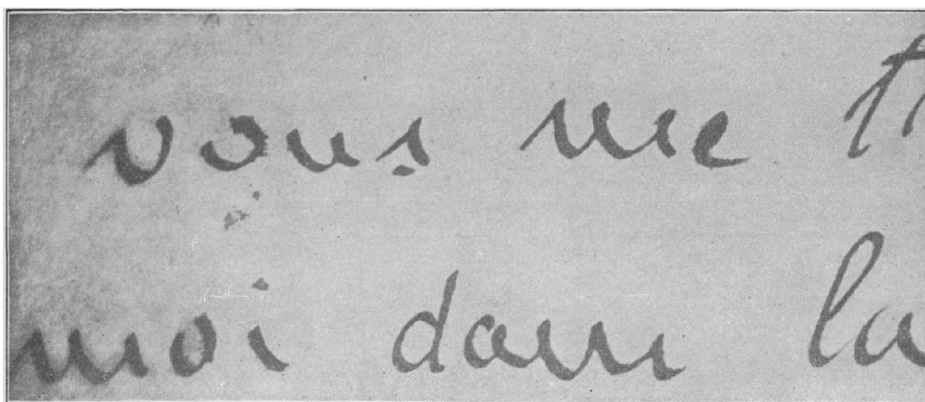 vous me t
moi dans la